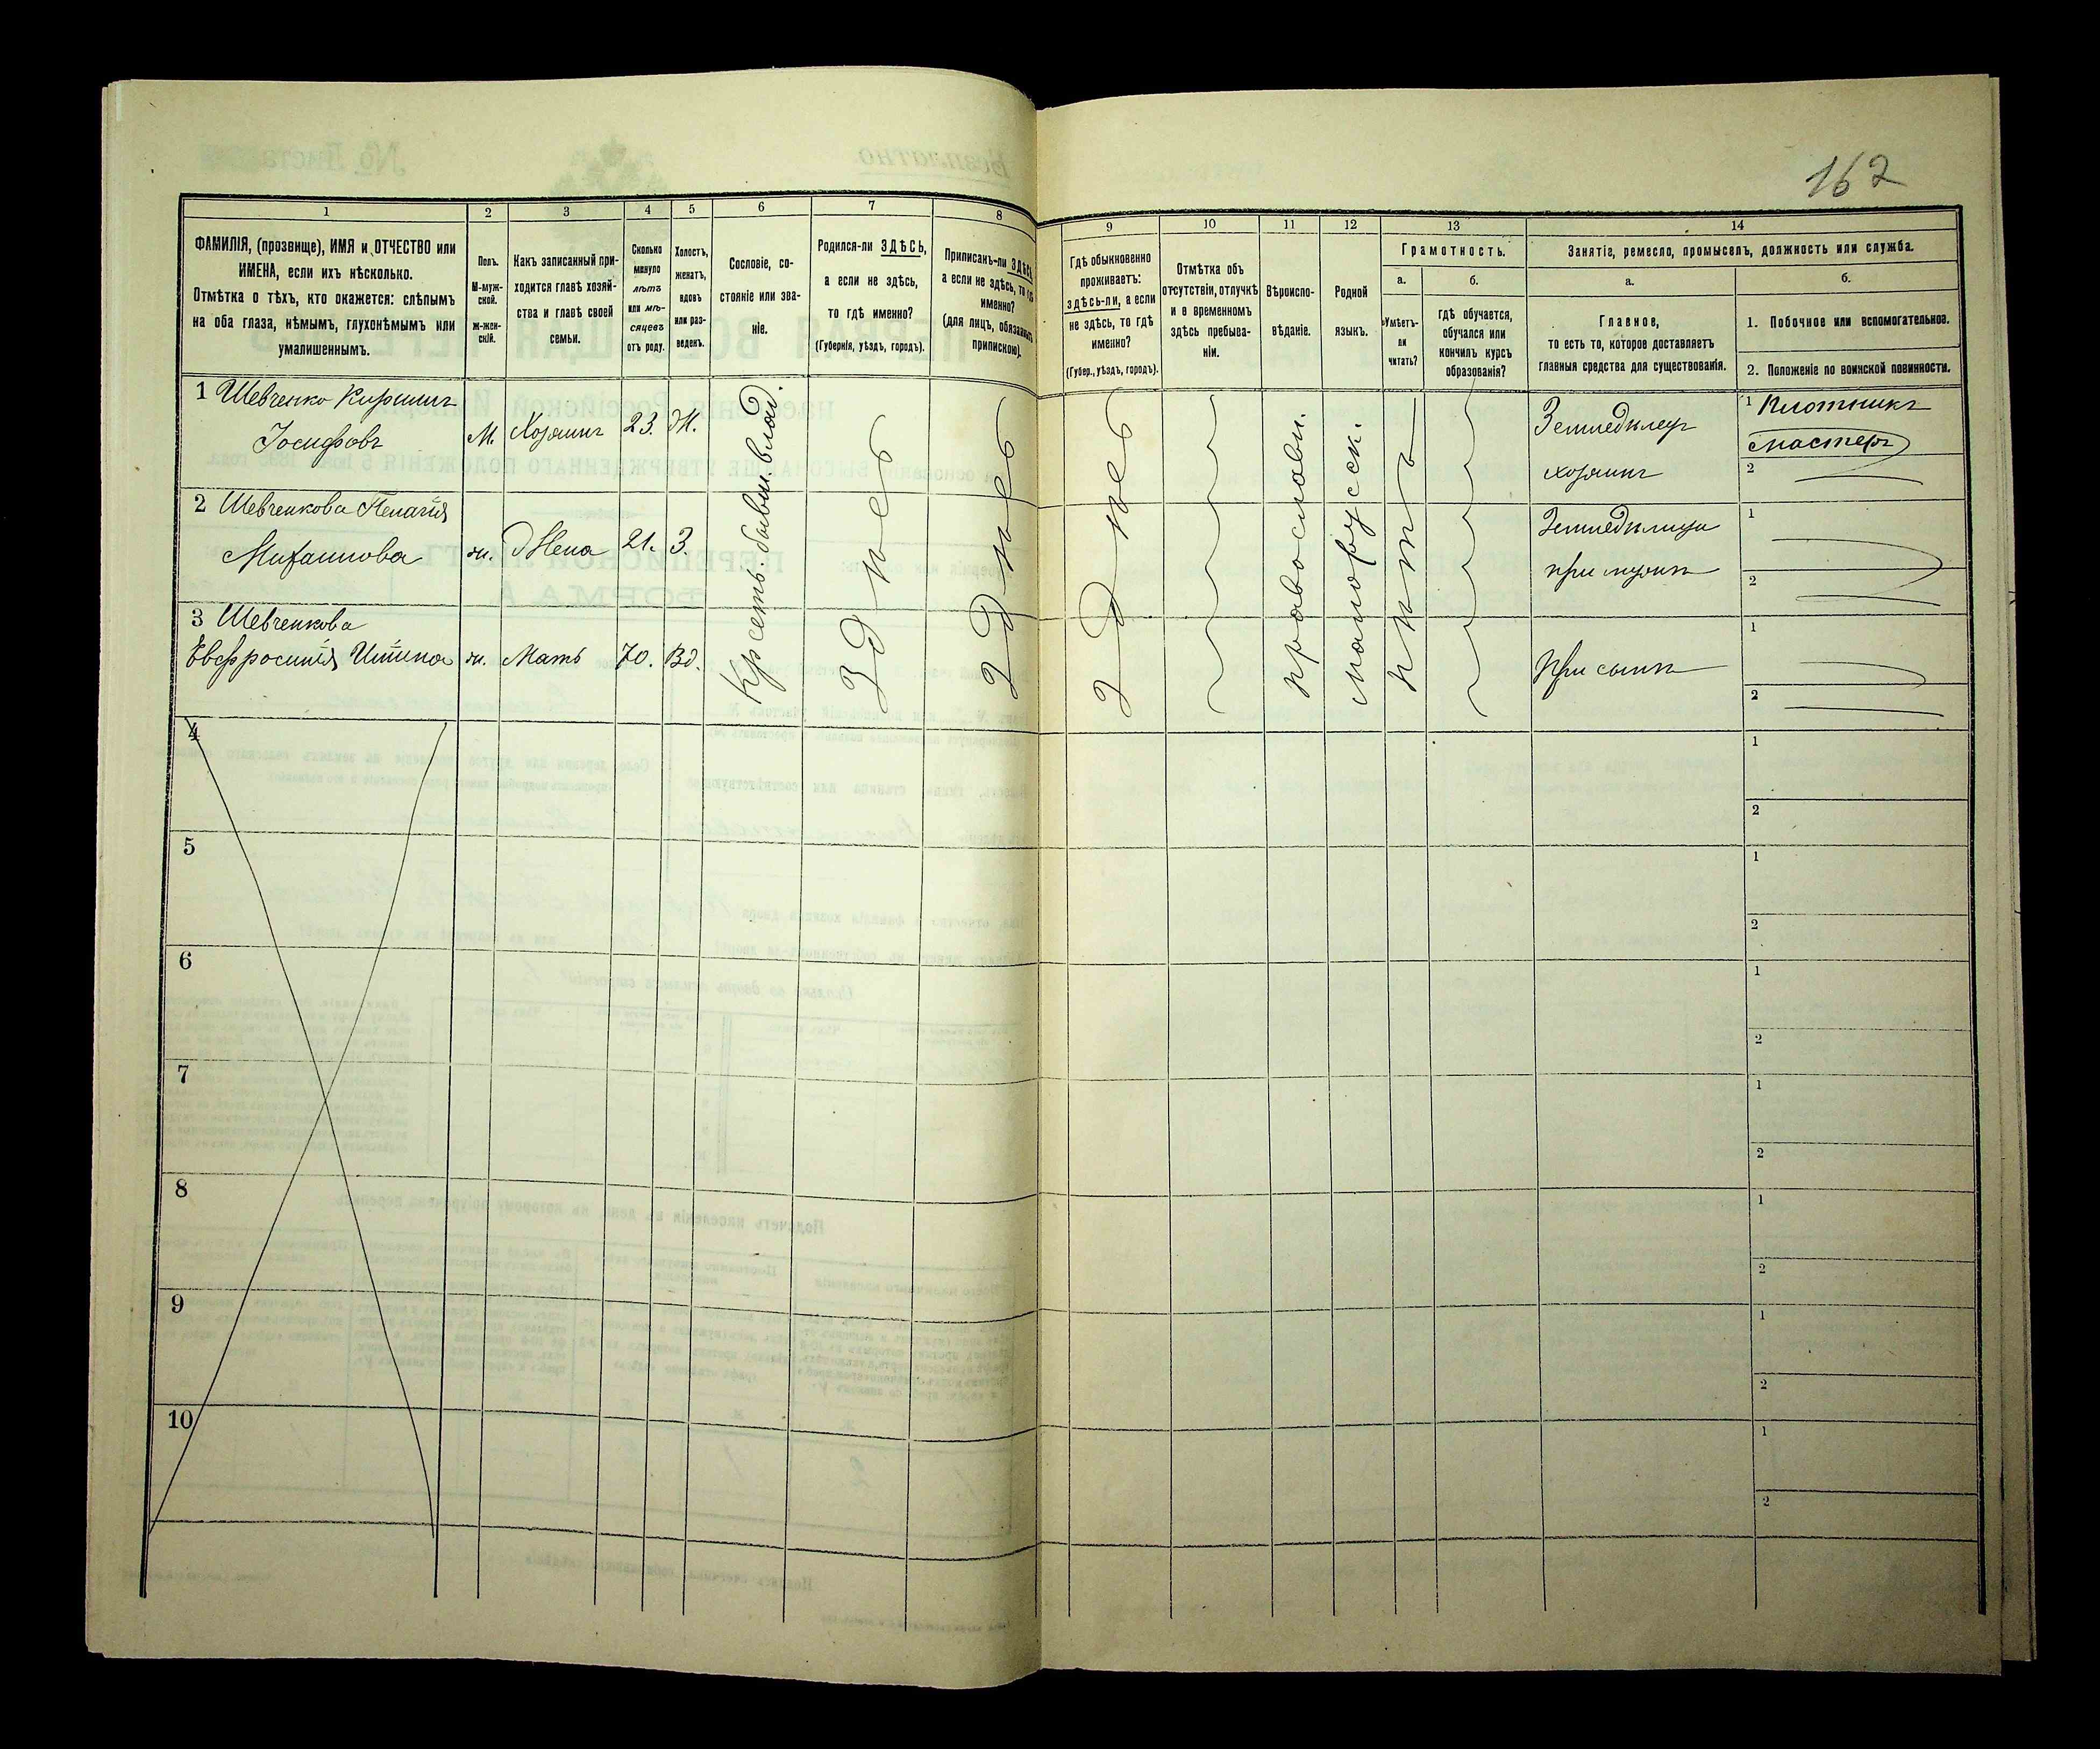 167
1
2
3
4
5
6
7
8
9
10
11
12
13
14
ФАМИЛІЯ, (прозвище), ИМЯ и ОТЧЕСТВО или
ИМЕНА, если ихъ нѣсколько.
Отмѣтка о тѣхъ, кто окажется: слѣпымъ
на оба глаза, нѣмымъ, глухонѣмымъ или
умалишеннымъ.
Полъ.
М-муж-
ской.
ж-жен-
скій.
Какъ записанный при-
ходится главѣ хозяй-
ства и главѣ своей
семьи.
Сколько
минуло
лѣтъ
или мѣ-
сяцевъ
отъ роду.
Холостъ,
женатъ,
вдовъ
или раз-
веденъ.
Сословіе, со-
стояніе или зва-
ніе.
Родился-ли ЗДѢСЬ,
а если не здѣсь,
то гдѣ именно?
(Губернія, уѣздъ, городъ).
Приписанъ-ли ЗДѢСЬ,
а если не здѣсь, то гдѣ
именно?
(для лицъ, обязанныхъ
припискою).
Гдѣ обыкновенно
проживаетъ:
здѣсь-ли, а если
не здѣсь, то гдѣ
именно?
(Губер., уѣздъ, городъ).
Отмѣтка объ
отсутствіи, отлучкѣ
и о временномъ
здѣсь пребыва-
ніи.
Вѣроиспо-
вѣданіе.
Родной
языкъ.
Грамотность.
а.
Умѣетъ-
ли
читать?
б.
гдѣ обучается,
обучался или
кончилъ курсъ
образованія?
Занятіе, ремесло, промыселъ, должность или служба.
а.
Главное,
то есть то, которое доставляетъ
главныя средства для существованія.
б.
1. Побочное или вспомогательное.
2. Положеніе по воинской повинности.
1 Шевченко Кирилъ
Іосифовъ
М.
Хозяинъ
23.
Ж.
Крсетъ. бывш. влад.
Здѣсь
Здѣсь
Здѣсь
православн.
малорусск.
нѣтъ
Земледѣлецъ
хозяинъ
1 Плотникъ
мастеръ
2
2 Шевченкова Пелагія
Михаилова
ж.
Жена
21.
З.
Земледѣлица
при мужѣ
1
2
3 Шевченкова
Евфросинія
ж.
Мать
70.
Вд.
при сынѣ
1
2
4
1
2
5
1
2
6
1
2
7
1
2
8
1
2
9
1
2
10
1
2